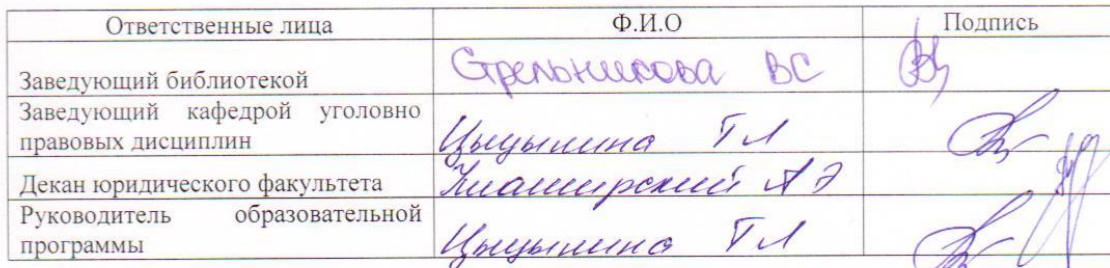 Ответственные лица Ф.И.О Подпись
Заведующий библиотекой Стрельникова ВС
Заведующий кафедрой уголовно
правовых дисциплин Цыцылина Т Л
Декан юридического факультета А Э
Руководитель образовательной
программы Цыцылина Т Л